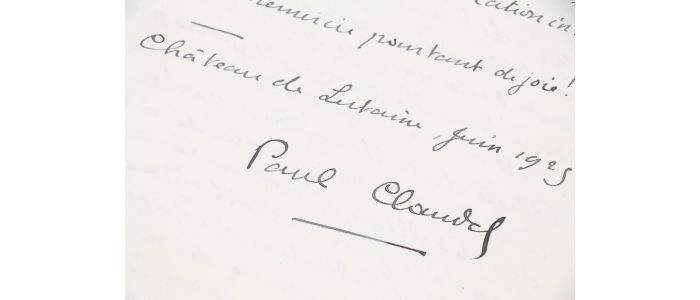 remercie pourtant de joie!
Château de Lutaine, Juin 1925
Paul Claudel